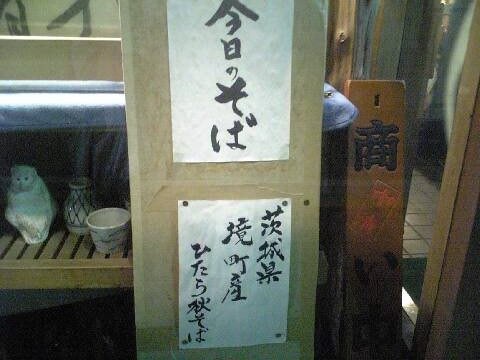 今日のそば
茨城県
境町産
ひたち秋そば
商